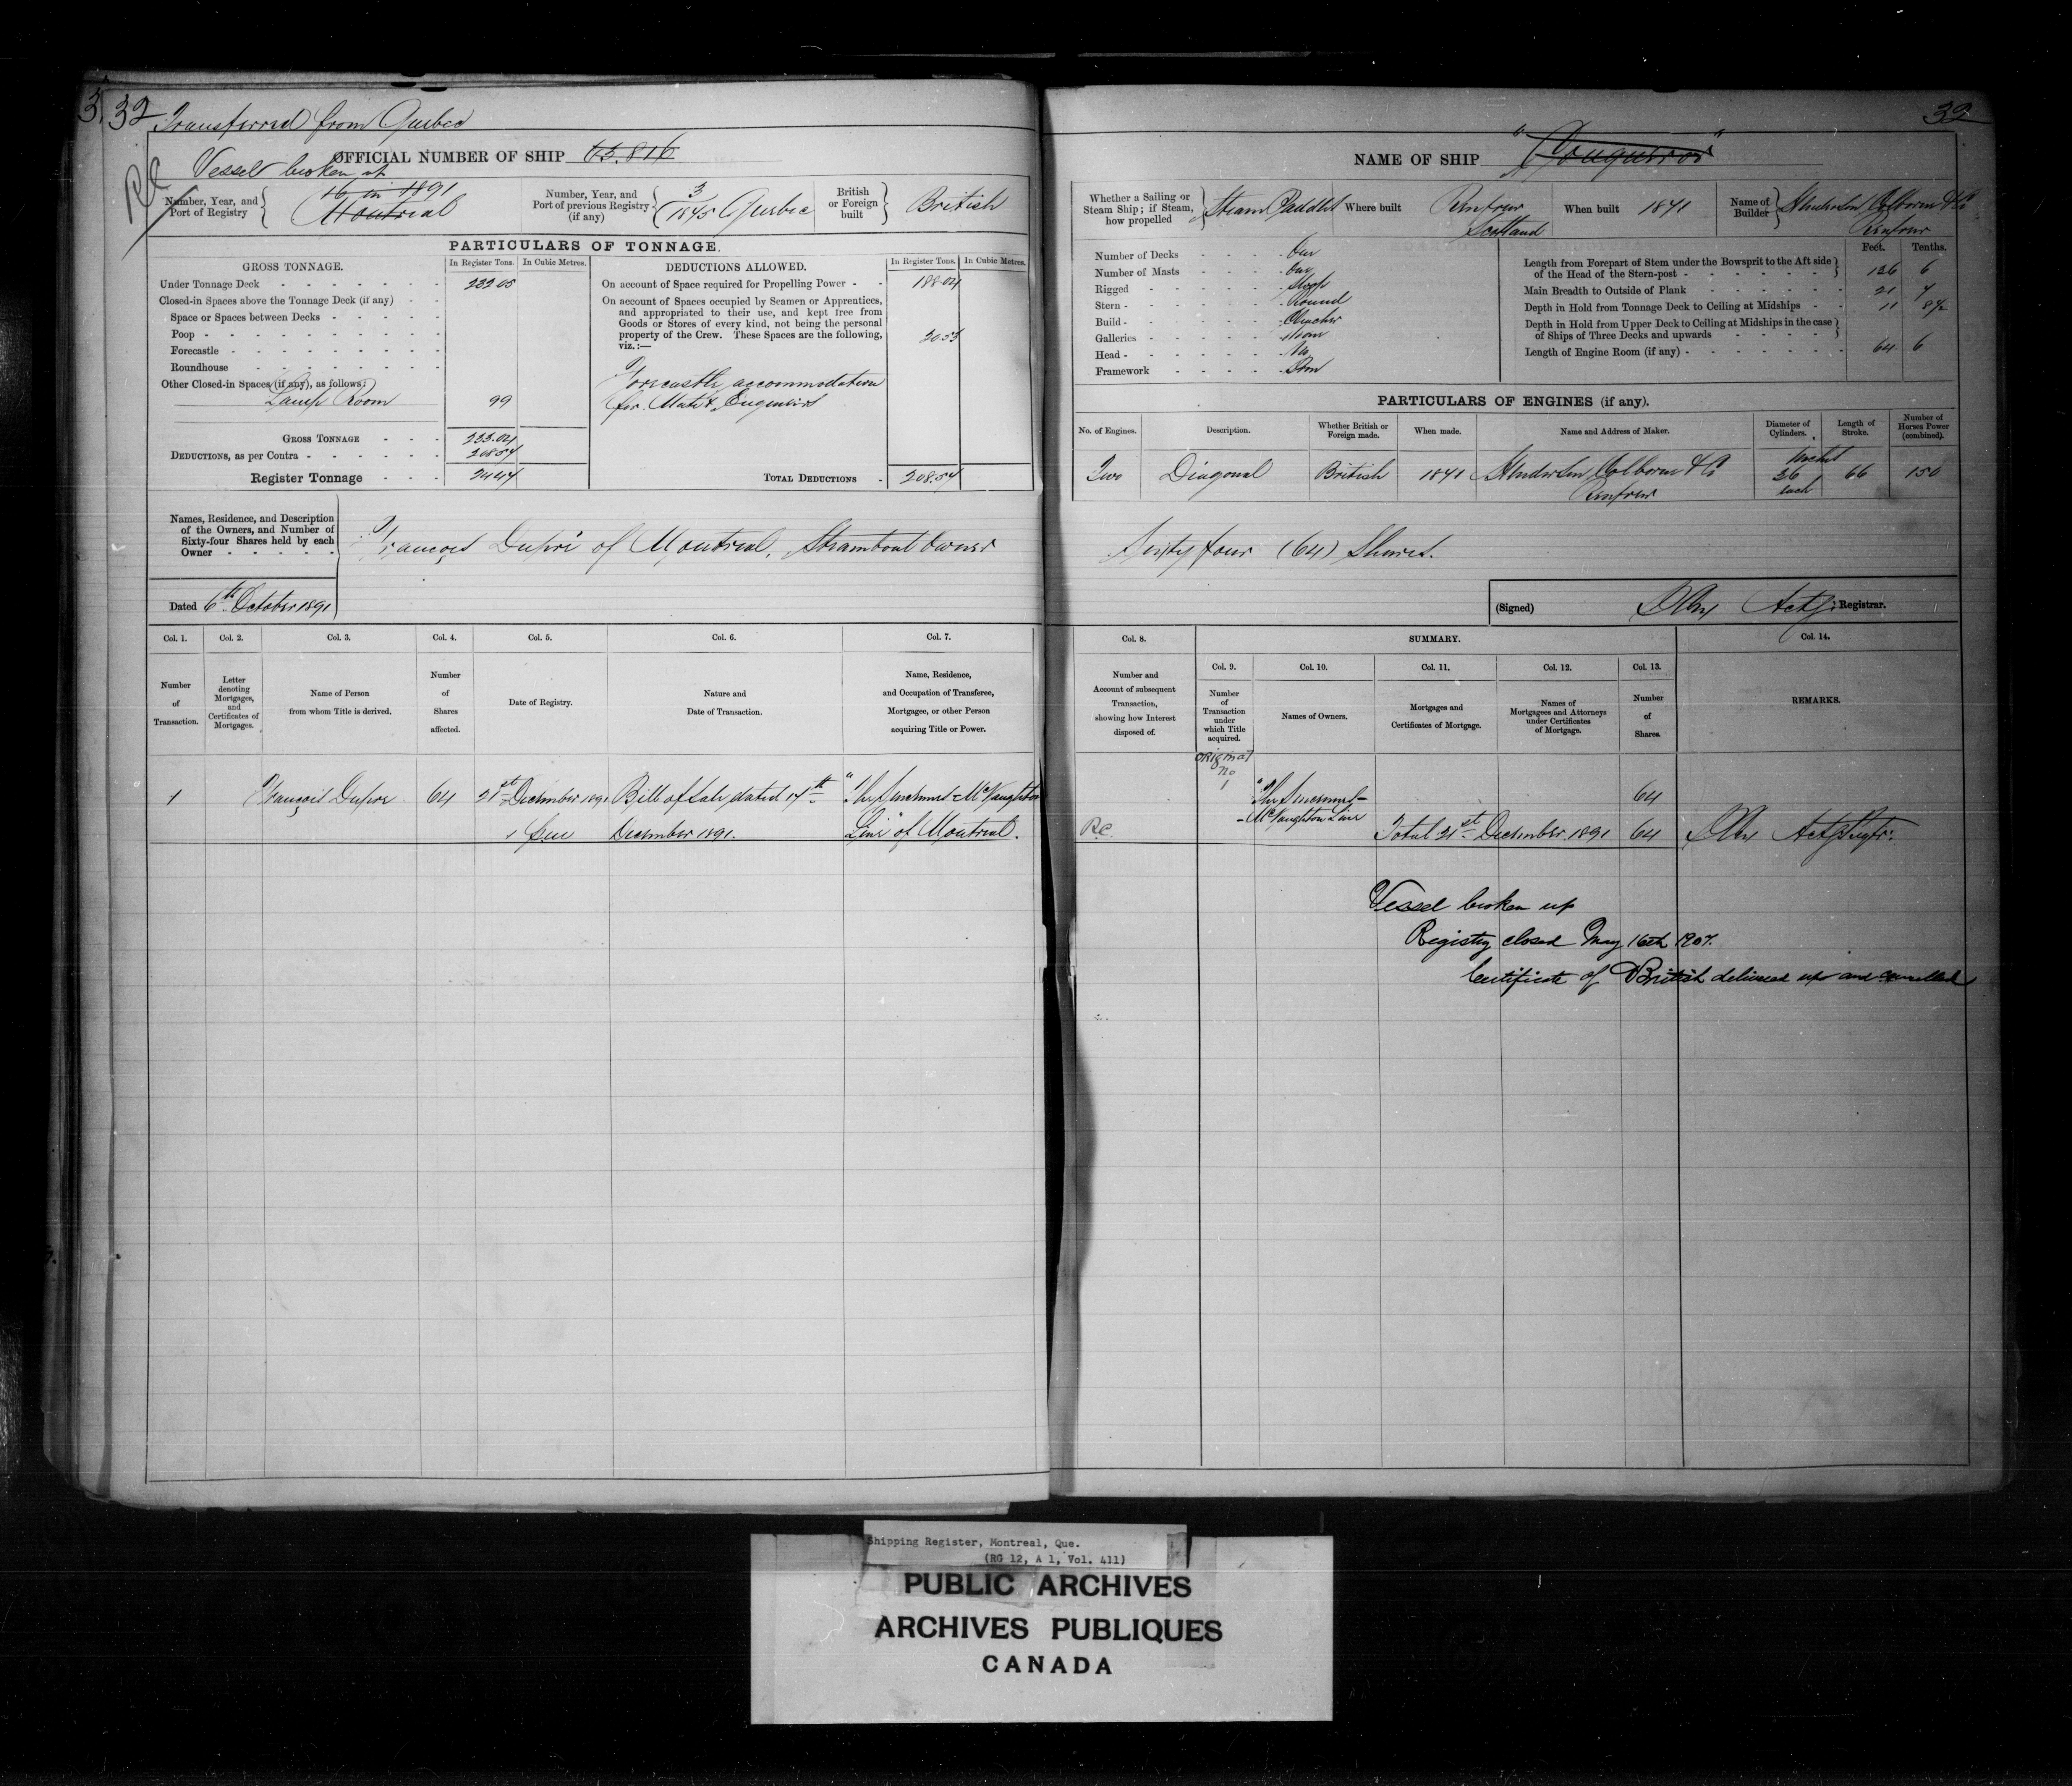 32
Transferred from Quebec
OFFICIAL NUMBER OF SHIP 63.816
Vessel broken up
Number, Year, and Port of Registry
16 in 1891
Montreal
Number, Year, and Port of previous Registry (if any)
3/1875 Quebec
British or Foreign built
British
PARTICULARS OF TONNAGE.
GROSS TONNAGE.
In Register Tons.
In Cubic Metres.
Under Tonnage Deck 232.05
Closed-in Spaces above the Tonnage Deck (if any)
Space or Spaces between Decks
Poop
Forecastle
Roundhouse
Other Closed-in Spaces (if any), as follows:
Lamp Room 99
GROSS TONNAGE 233.04
DEDUCTIONS, as per Contra 208.57
Register Tonnage 24.47
DEDUCTIONS ALLOWED.
In Register Tons.
In Cubic Metres.
On account of Space required for Propelling Power 188.04
On account of Spaces occupied by Seamen or Apprentices,
and appropriated to their use, and kept free from
Goods or Stores of every kind, not being the personal
property of the Crew. These Spaces are the following,
viz.:— 20.53
Forecastle, accommodation
for Mate & Engineers
TOTAL DEDUCTIONS 208.57
Names, Residence, and Description
of the Owners, and Number of
Sixty-four Shares held by each
Owner
François Dupré of Montreal, Steamboat Owner
Dated 6th October 1891
Col. 1.
Col. 2.
Col. 3.
Col. 4.
Col. 5.
Col. 6.
Col. 7.
Number of Transaction.
Letter denoting Mortgages, and Certificates of Mortgages.
Name of Person from whom Title is derived.
Number of Shares affected.
Date of Registry.
Nature and Date of Transaction.
Name, Residence, and Occupation of Transferee, Mortgagee, or other Person acquiring Title or Power.
1 François Dupré 64 21st December 1891 Bill of Sale dated 17th "The Sincennes-McNaughton
December 1891. Line" of Montreal.
32
NAME OF SHIP "Conqueror"
Whether a Sailing or Steam Ship; if Steam, how propelled
Steam Paddles
Where built
Renfrew
Scotland
When built 1871
Name of Builder
Henderson Colborn & Co
Renfrew
Number of Decks One
Number of Masts One
Rigged Sloop
Stern Round
Build Clincher
Galleries None
Head No
Framework Iron
Feet. Tenths.
Length from Forepart of Stem under the Bowsprit to the Aft side
of the Head of the Stern-post 126 6
Main Breadth to Outside of Plank 21 7
Depth in Hold from Tonnage Deck to Ceiling at Midships 11 8½
Depth in Hold from Upper Deck to Ceiling at Midships in the case
of Ships of Three Decks and upwards
Length of Engine Room (if any) 64 6
PARTICULARS OF ENGINES (if any).
No. of Engines.
Description.
Whether British or Foreign made.
When made.
Name and Address of Maker.
Diameter of Cylinders.
Length of Stroke.
Number of Horses Power (combined).
Two Diagonal British 1871 Henderson, Colborn & Co 36 66 150
Renfrew each
Sixty four (64) Shares.
(Signed) Actg: Registrar.
Col. 8.
SUMMARY.
Col. 14.
Col. 9.
Col. 10.
Col. 11.
Col. 12.
Col. 13.
Number and Account of subsequent Transaction, showing how Interest disposed of.
Number of Transaction under which Title acquired.
Names of Owners.
Mortgages and Certificates of Mortgage.
Names of Mortgagees and Attorneys under Certificates of Mortgage.
Number of Shares.
REMARKS.
Original
No
1 "The Sincennes- 64
-McNaughton Line
R.C. Total 21st December 1891 64 Actg Regtr:
Vessel broken up
Registry closed May 16th 1907.
Certificate of British delivered up and cancelled
Shipping Register, Montreal, Que.
(RG 12, A 1, Vol. 411)
PUBLIC ARCHIVES
ARCHIVES PUBLIQUES
CANADA